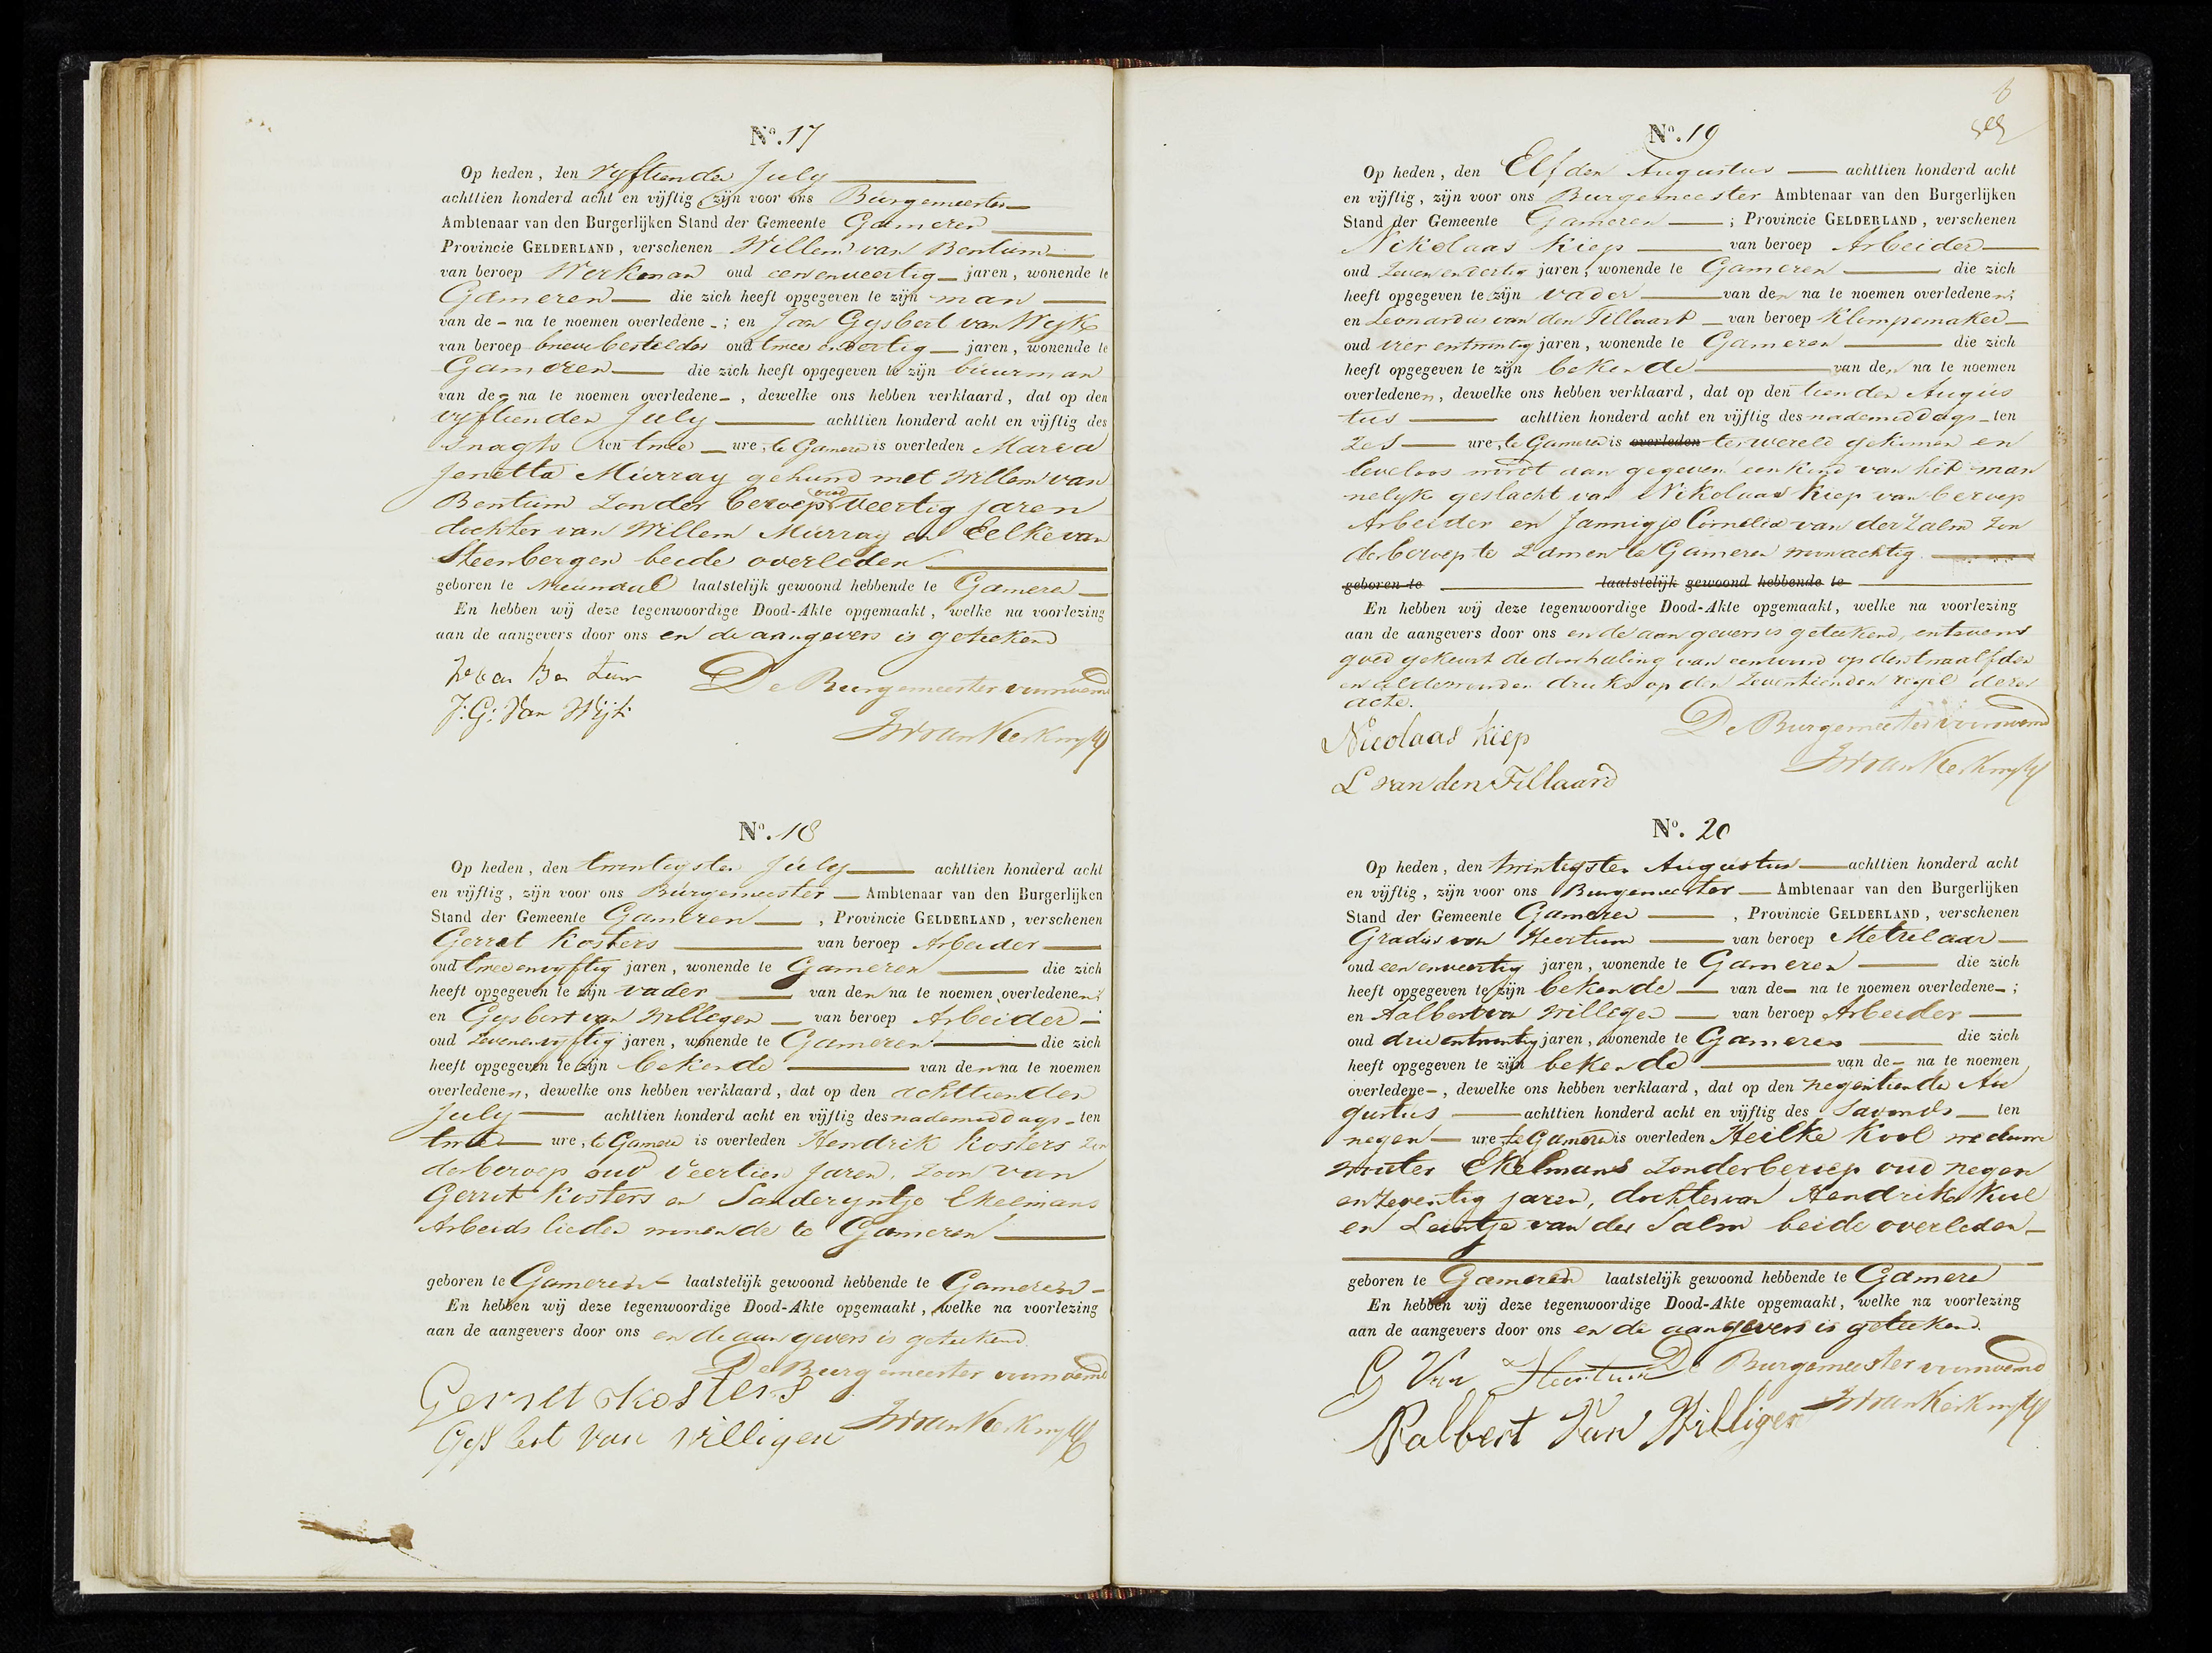 No. 17
Op heden, den vyftienden July
achttien honderd acht en vijftig zijn voor ons Burgemeester
Ambtenaar van den Burgerlijken Stand der Gemeente Gameren
Provincie GELDERLAND, verschenen Willem van Bentum
van beroep Werkman oud eenenveertig jaren, wonende te
Gameren die zich heeft opgegeven te zijn man
van de - na te noemen overledene -; en Jan Gysbert van Wyk
van beroep brievebesteller oud twee en dertig jaren, wonende te
Gameren die zich heeft opgegeven te zijn buurman
van de - na te noemen overledene -, dewelke ons hebben verklaard, dat op den
vyftienden July achttien honderd acht en vijftig des
snagts ten twee ure, te Gameren is overleden Maria
Jenetta Murray gehund met Willem van
Bentum zonder beroep oud veertig jaren
dochter van Willem Murray en Eelke van
Steenbergen beide overleden
geboren te laatstelijk gewoond hebbende te Gameren
En hebben wij deze tegenwoordige Dood-Akte opgemaakt, welke na voorlezing
aan de aangevers door ons en de aangevers is geteekend
De Burgemeester voornoemd
J. G. Van Wijk
No. 18
Op heden, den twintigsten July achttien honderd acht
en vijftig, zijn voor ons Burgemeester Ambtenaar van den Burgerlijken
Stand der Gemeente Gameren, Provincie GELDERLAND, verschenen
Gerret Kosters van beroep Arbeider
oud tweeenvyftig jaren, wonende te Gameren die zich
heeft opgegeven te zijn vader van den na te noemen overledenen;
en Gysbert van Willegen van beroep Arbeider
oud zevenenvyftig jaren, wonende te Gameren die zich
heeft opgegeven te zijn bekende van den na te noemen
overledenen, dewelke ons hebben verklaard, dat op den achttienden
July achttien honderd acht en vijftig des nademiddags ten
twee ure, te Gameren is overleden Hendrik Kosters zon
derberoep oud veertien jaren, zoon van
Gerrit Kosters en Sanderyntje Ekelmans
Arbeids lieden wonende te Gameren
geboren te Gameren laatstelijk gewoond hebbende te Gameren
En hebben wij deze tegenwoordige Dood-Akte opgemaakt, welke na voorlezing
aan de aangevers door ons en de aangevers is geteekend
De Burgemeester voornoemd
Gerret Kosters
Gysbert van Willigen
No. 19
Op heden, den Elfden Augustus achttien honderd acht
en vijftig, zijn voor ons Burgemeester Ambtenaar van den Burgerlijken
Stand der Gemeente Gameren; Provincie GELDERLAND, verschenen
Nikolaas Kiep van beroep Arbeider
oud zevenendertig jaren, wonende te Gameren die zich
heeft opgegeven te zijn vader van den na te noemen overledenen;
en Leonardus van den Tillaart van beroep Klompemaker
oud vier entwintig jaren, wonende te Gameren die zich
heeft opgegeven te zijn bekende van den na te noemen
overledenen, dewelke ons hebben verklaard, dat op den tienden Augus
tus achttien honderd acht en vijftig des nademiddags ten
zes ure, te Gameren is overleden ter wereld gekomen en
leveloos wordt aan gegeven een kind van het man
nelyk geslacht van Nikolaas Kiep van beroep
Arbeider en Jannigje Cornelia van der Zalm zon
derberoep te zamen te Gameren woonachtig
geboren te laatstelijk gewoond hebbende te
En hebben wij deze tegenwoordige Dood-Akte opgemaakt, welke na voorlezing
aan de aangevers door ons en de aangevers is geteekend, entevens
goed gekeurt de doorhaling van een woord op den twaalfden
en woorden druks op den zeventienden regel dezer
acte.
De Burgemeester voornoemd
Nicolaas Kiep
L van den Tillaard
No. 20
Op heden, den twintigsten Augustus achttien honderd acht
en vijftig, zijn voor ons Burgemeester Ambtenaar van den Burgerlijken
Stand der Gemeente Gameren, Provincie GELDERLAND, verschenen
Gradus van Heertum van beroep Metselaar
oud een enveertig jaren, wonende te Gameren die zich
heeft opgegeven te zijn bekende van de - na te noemen overledene -;
en Aalbert van Willigen van beroep Arbeider
oud drie entwintig jaren, wonende te Gameren die zich
heeft opgegeven te zijn bekende van de - na te noemen
overledene -, dewelke ons hebben verklaard, dat op den negentiende Au
gustus achttien honderd acht en vijftig des savonds ten
negen ure te Gameren is overleden Heilke Kool weduwe
wouter Ekelmans zonderberoep oud negen
enzeventig jaren, dochter van Hendrik Kool
en Leintje van der Salm beide overleden
geboren te Gameren laatstelijk gewoond hebbende te Gameren
En hebben wij deze tegenwoordige Dood-Akte opgemaakt, welke na voorlezing
aan de aangevers door ons en de aangevers is geteekend.
G Van Heertum De Burgemeester voornoemd
Aalbert Van Willigen